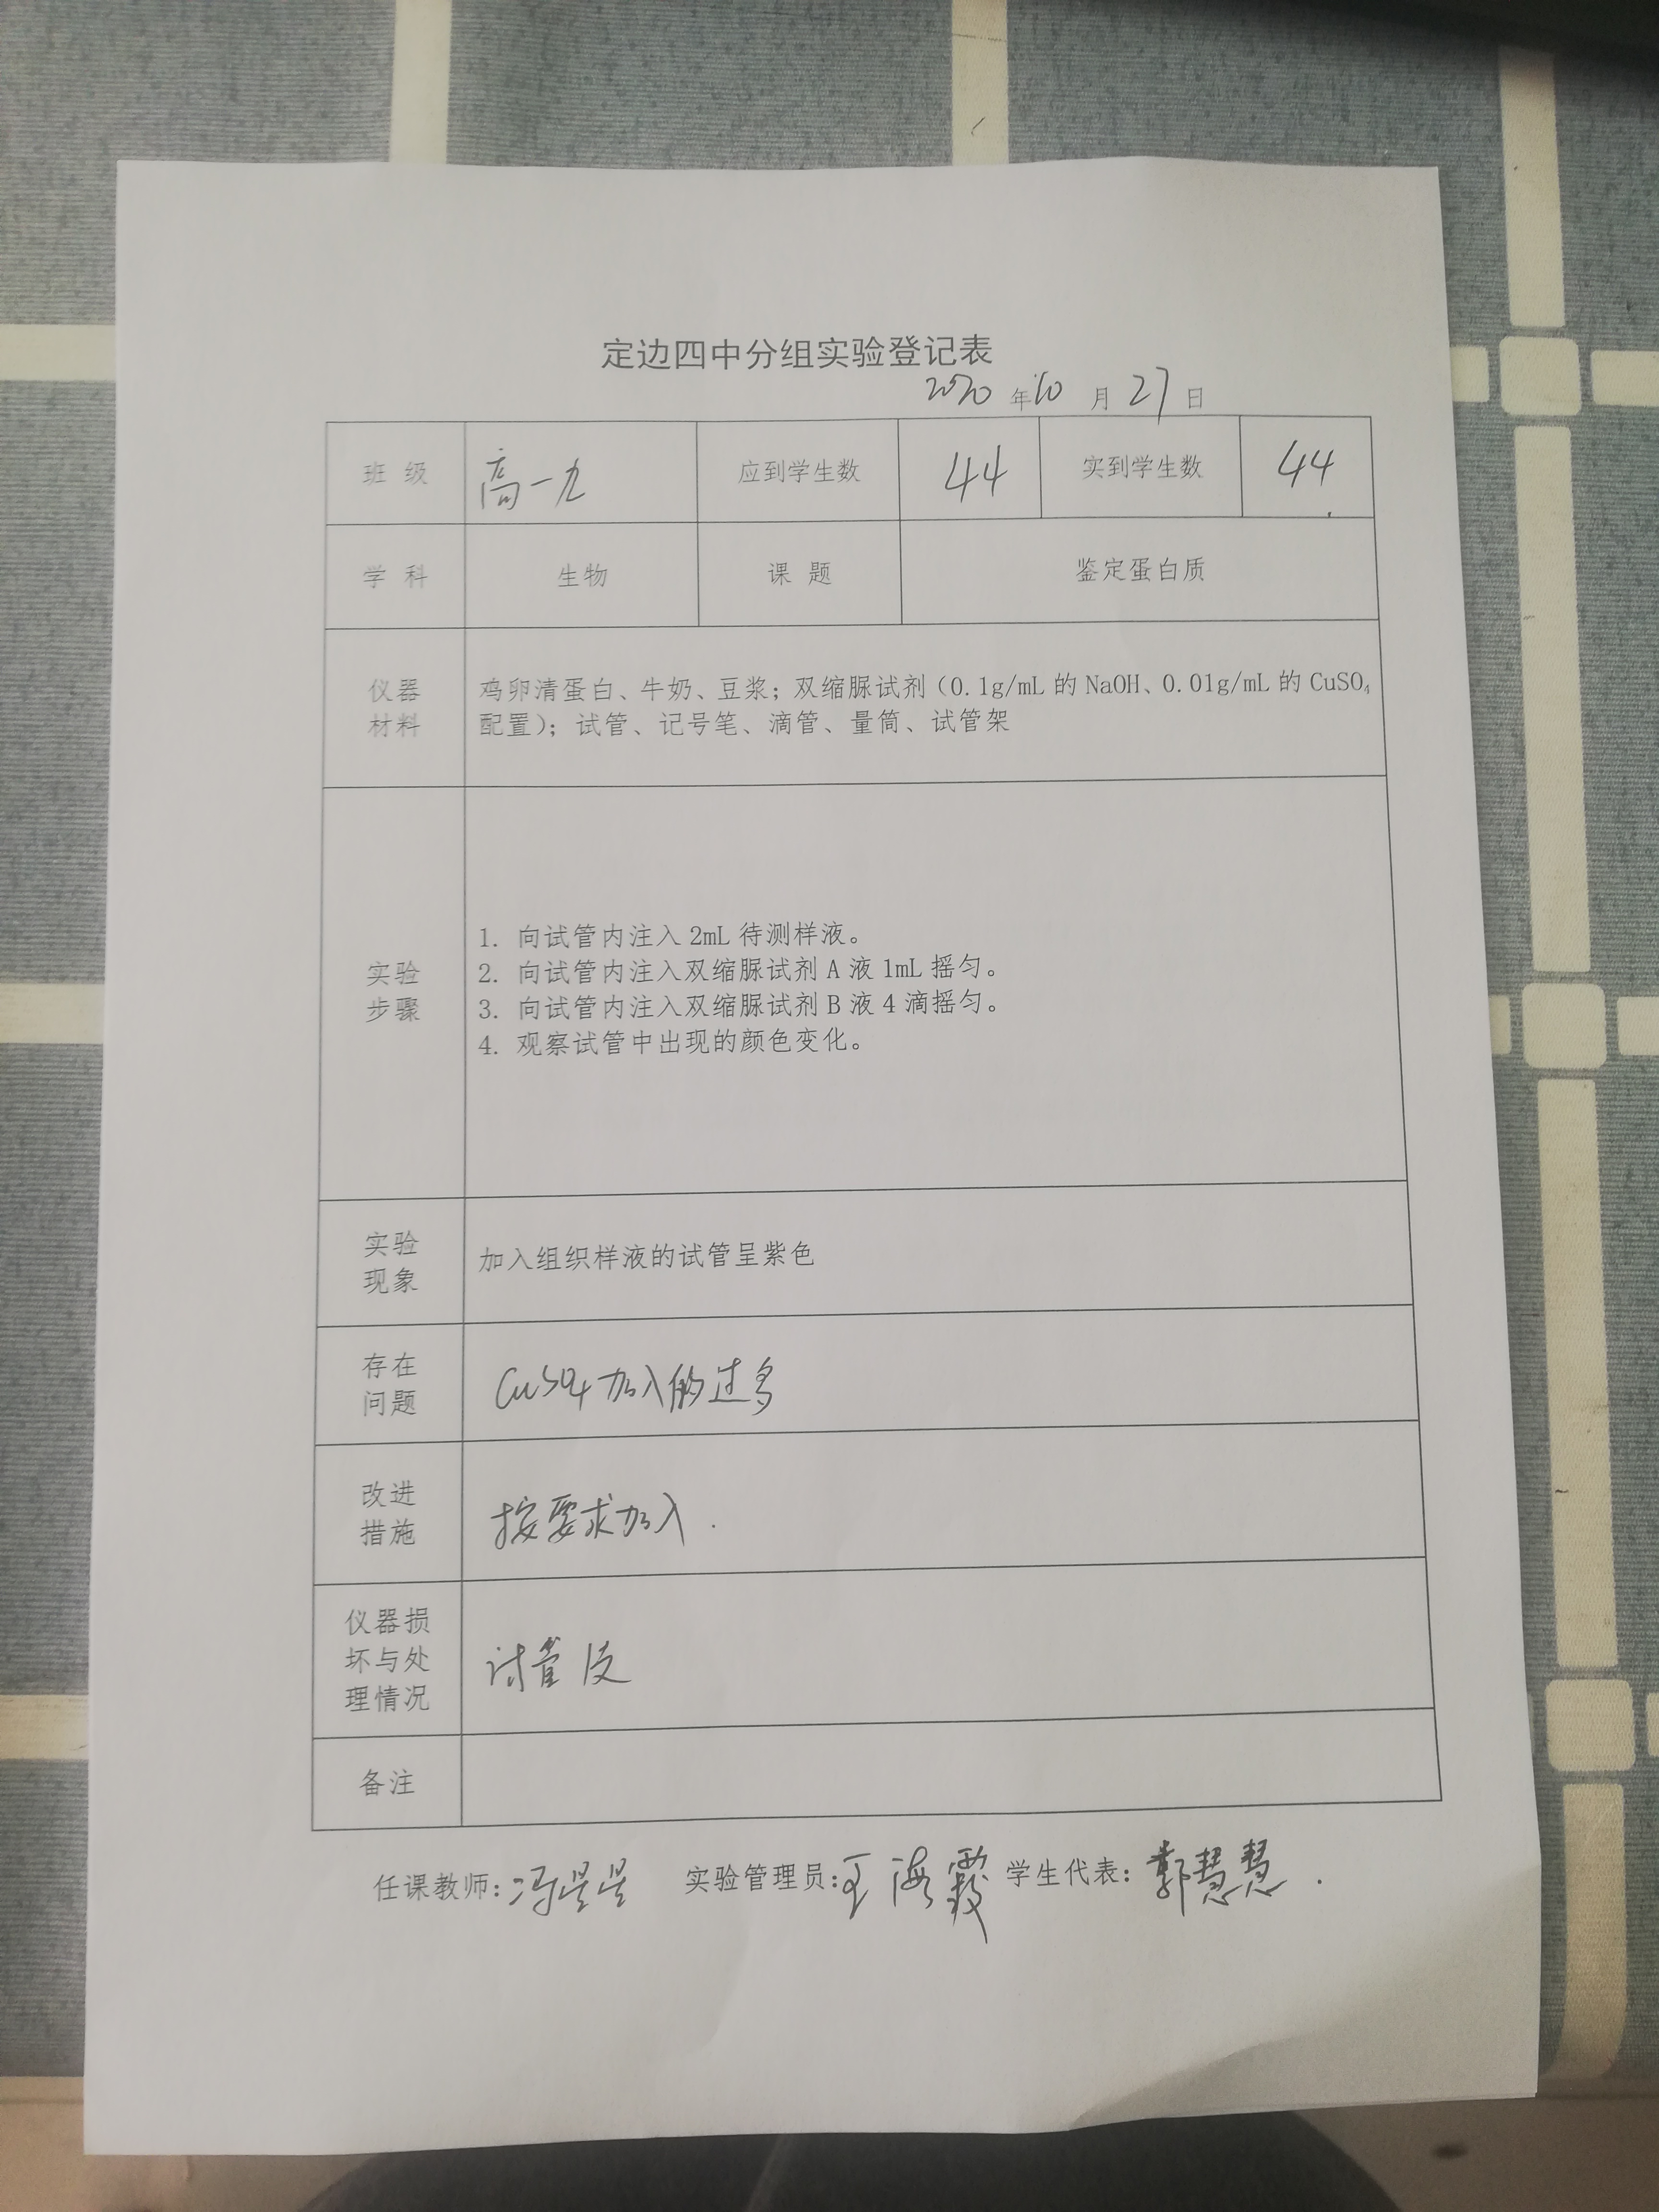 定边四中分组实验登记表
2020 年 10 月 27 日
班 级 高一九 应到学生数 44 实到学生数 44
学 科 生物 课 题 鉴定蛋白质
仪器
材料
鸡卵清蛋白、牛奶、豆浆；双缩脲试剂（0.1g/mL 的 NaOH、0.01g/mL 的 CuSO₄
配置）；试管、记号笔、滴管、量筒、试管架
实验
步骤
1. 向试管内注入 2mL 待测样液。
2. 向试管内注入双缩脲试剂 A 液 1mL 摇匀。
3. 向试管内注入双缩脲试剂 B 液 4 滴摇匀。
4. 观察试管中出现的颜色变化。
实验
现象
加入组织样液的试管呈紫色
存在
问题
CuSO4 加入的过多
改进
措施
按要求加入.
仪器损
坏与处
理情况
试管
备注
任课教师：冯 实验管理员：王海霞 学生代表：郭慧慧.